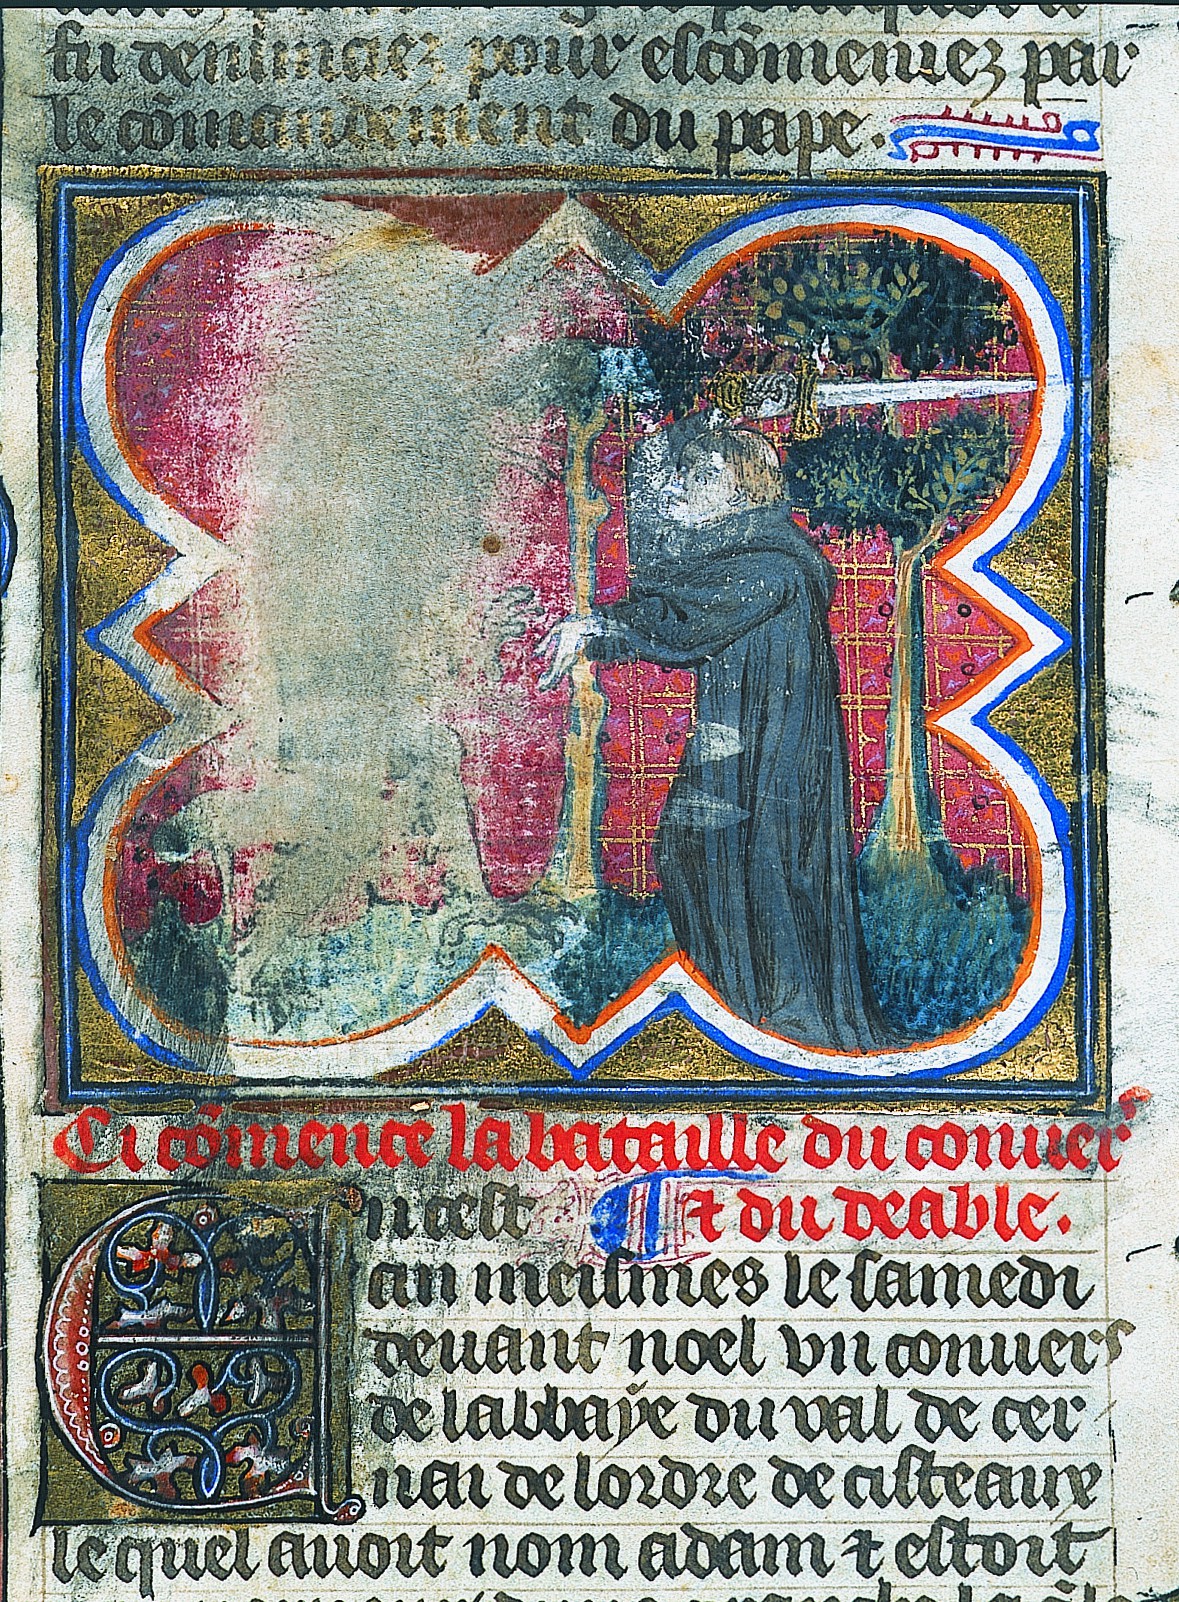 fu denunciez pour escōmeniez par
le cōmandement du pape.
Ci cōmence la bataille du conuer
n cest ⁊ du deable.
an meismes le samedi
deuant noel vn conuers
de labbaÿe du val de cer
nai de lordre de cisteaux
le quel auoit nom adam ⁊ estoit